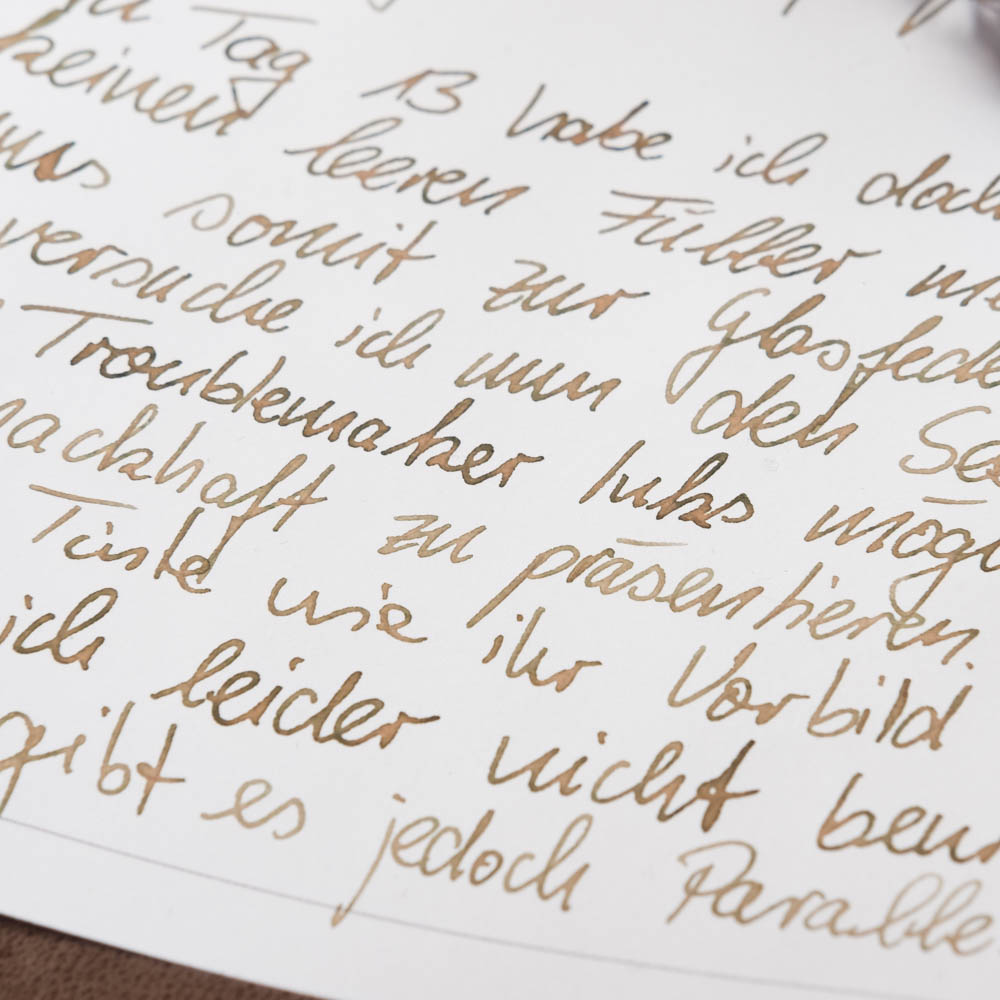 Tag 13 habe ich doch
keinen leeren Füller
somit zur Glasfede
versuche ich nun den Se
Troublemaker Inks mögl
mackhaft zu präsentieren.
Tinte wie ihr Vorbild
ich leider nicht beur
gibt es jedoch Parallele